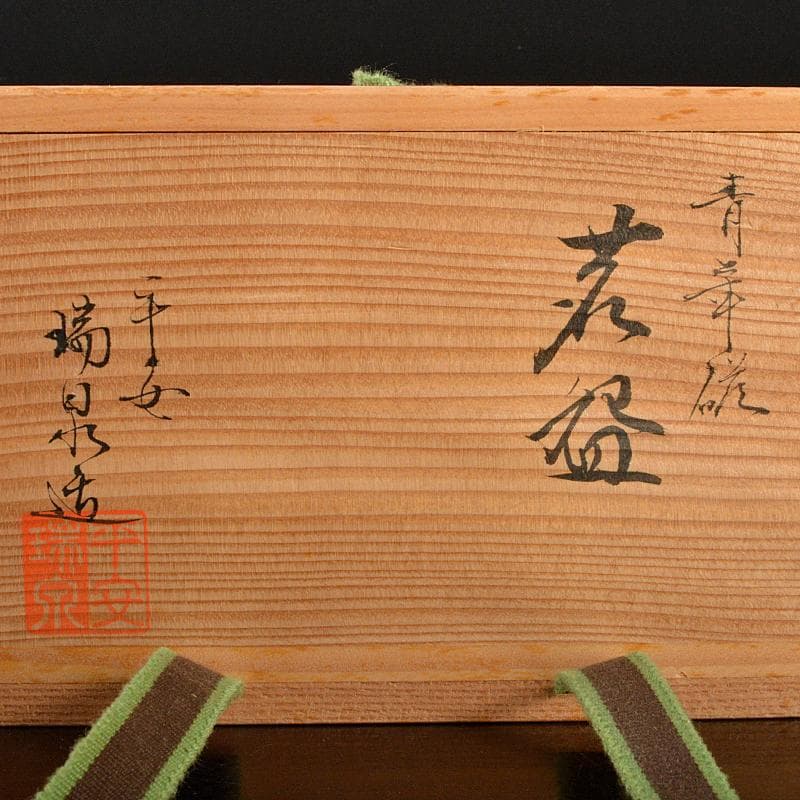 青華磁
茗盌
平安
瑞泉造
平安
瑞泉